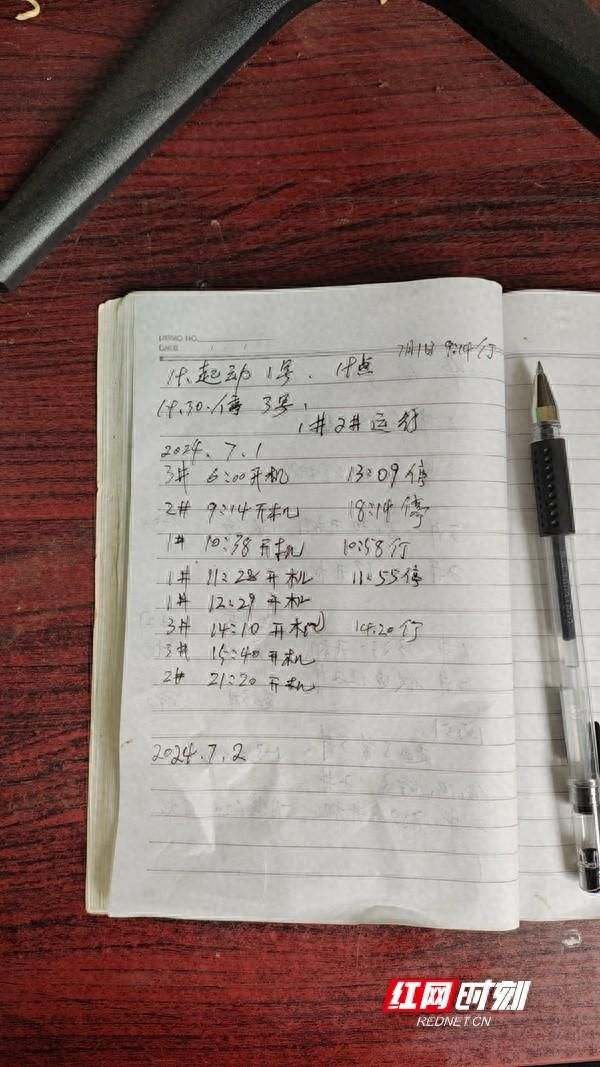 MEMO NO.
DATE / /
7月1日 9:14行
1#起动1号、
14.30.停 3号,
1# 2#运行
2024.7.1
3# 6:00开机 13:09停
2# 9:14开机 18:14停
1# 10:38开机 10:58行
1# 11:28开机 11:55停
1# 12:29开机
3# 14:10开机 14:20行
3# 15:40开机
2# 21:20开机
2024.7.2
红网时刻
REDNET.CN